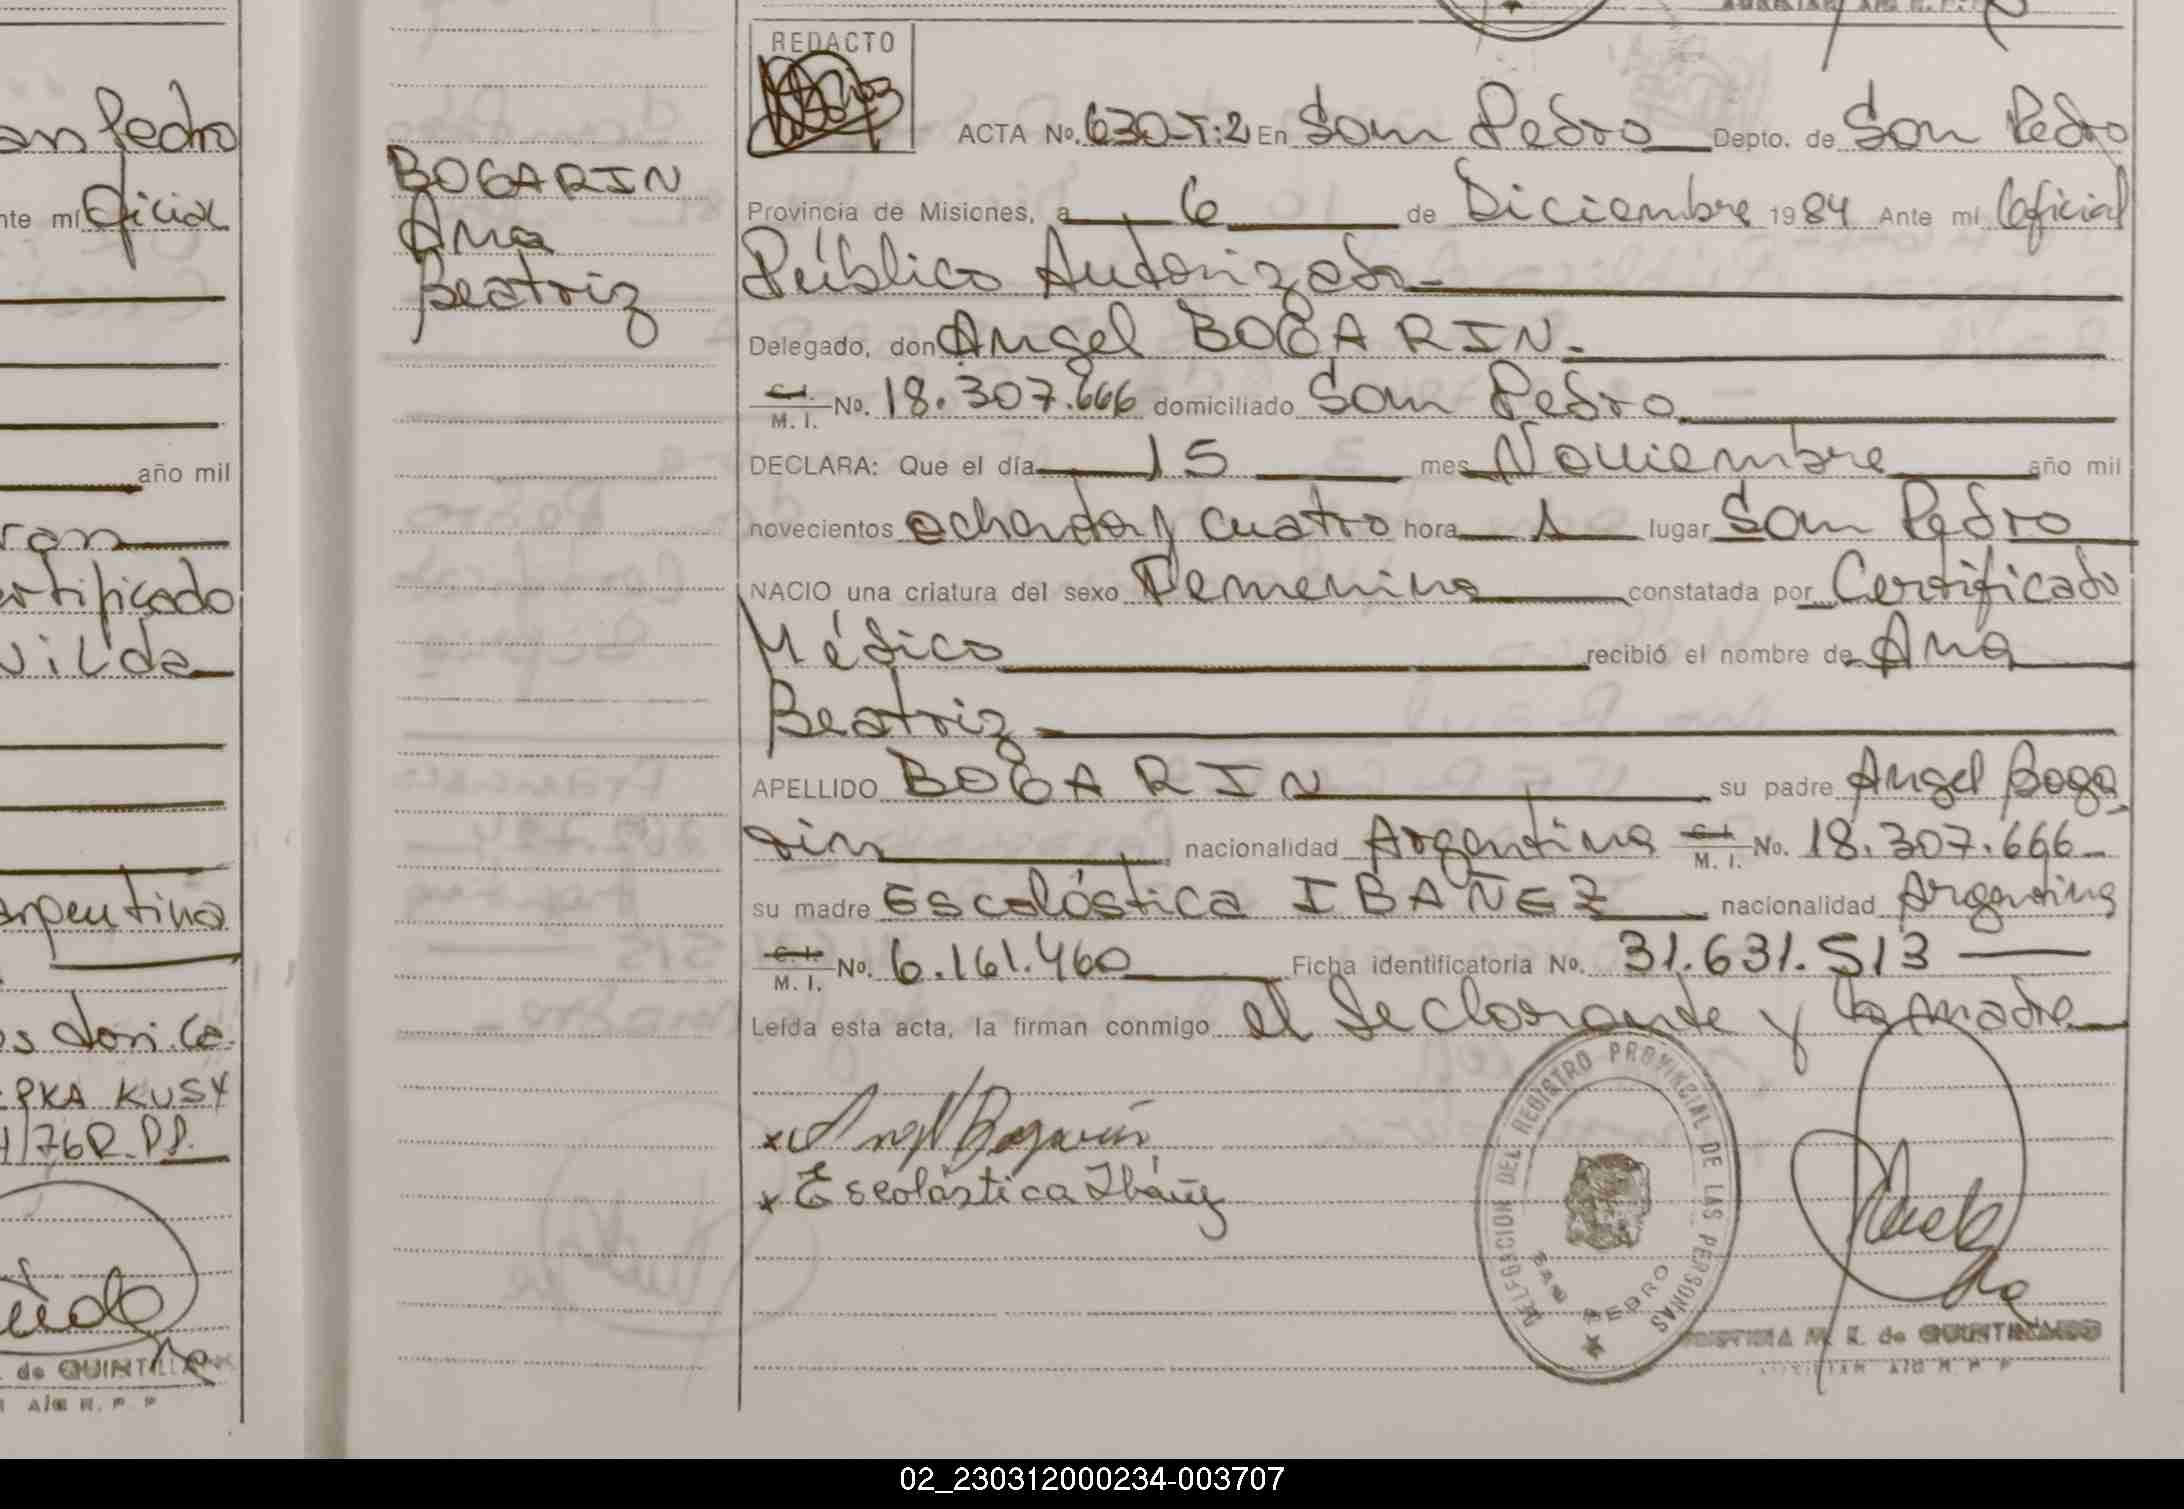 an Pedro
nte mí Oficial
año mil
ran
ertificado
vilda
argentina
PKA KUSY
de QUINTILLA
BOGARIN
Ana
Beatriz
REDACTO
ACTA No. 630-T:2 En San Pedro Depto. de San Pedro
Provincia de Misiones, a 6 de Diciembre 1984 Ante mí Oficial
Público Autorizado
Delegado, don Angel BOGARIN.
C.I. M. I. No. 18.307.666 domiciliado San Pedro
DECLARA: Que el día 15 mes Noviembre año mil
novecientos ochenta y cuatro hora 1 lugar San Pedro
NACIO una criatura del sexo Femenino constatada por Certificado
Médico recibió el nombre de Ana
Beatriz
APELLIDO BOGARIN su padre Angel Boga
rin nacionalidad Argentina C.I. M. I. No. 18.307.666
su madre Escolástica IBAÑEZ nacionalidad Argentina
C.I. M. I. No. 6.161.460 Ficha identificatoria No. 31.631.513
Leída esta acta, la firman conmigo el declarante y la madre
x Angel Bogarín
x Escolástica Ibáñez
DELEGACION DEL REGISTRO PROVINCIAL DE LAS PERSONAS
SAN PEDRO
M. K. de QUINTINANO
02_230312000234-003707